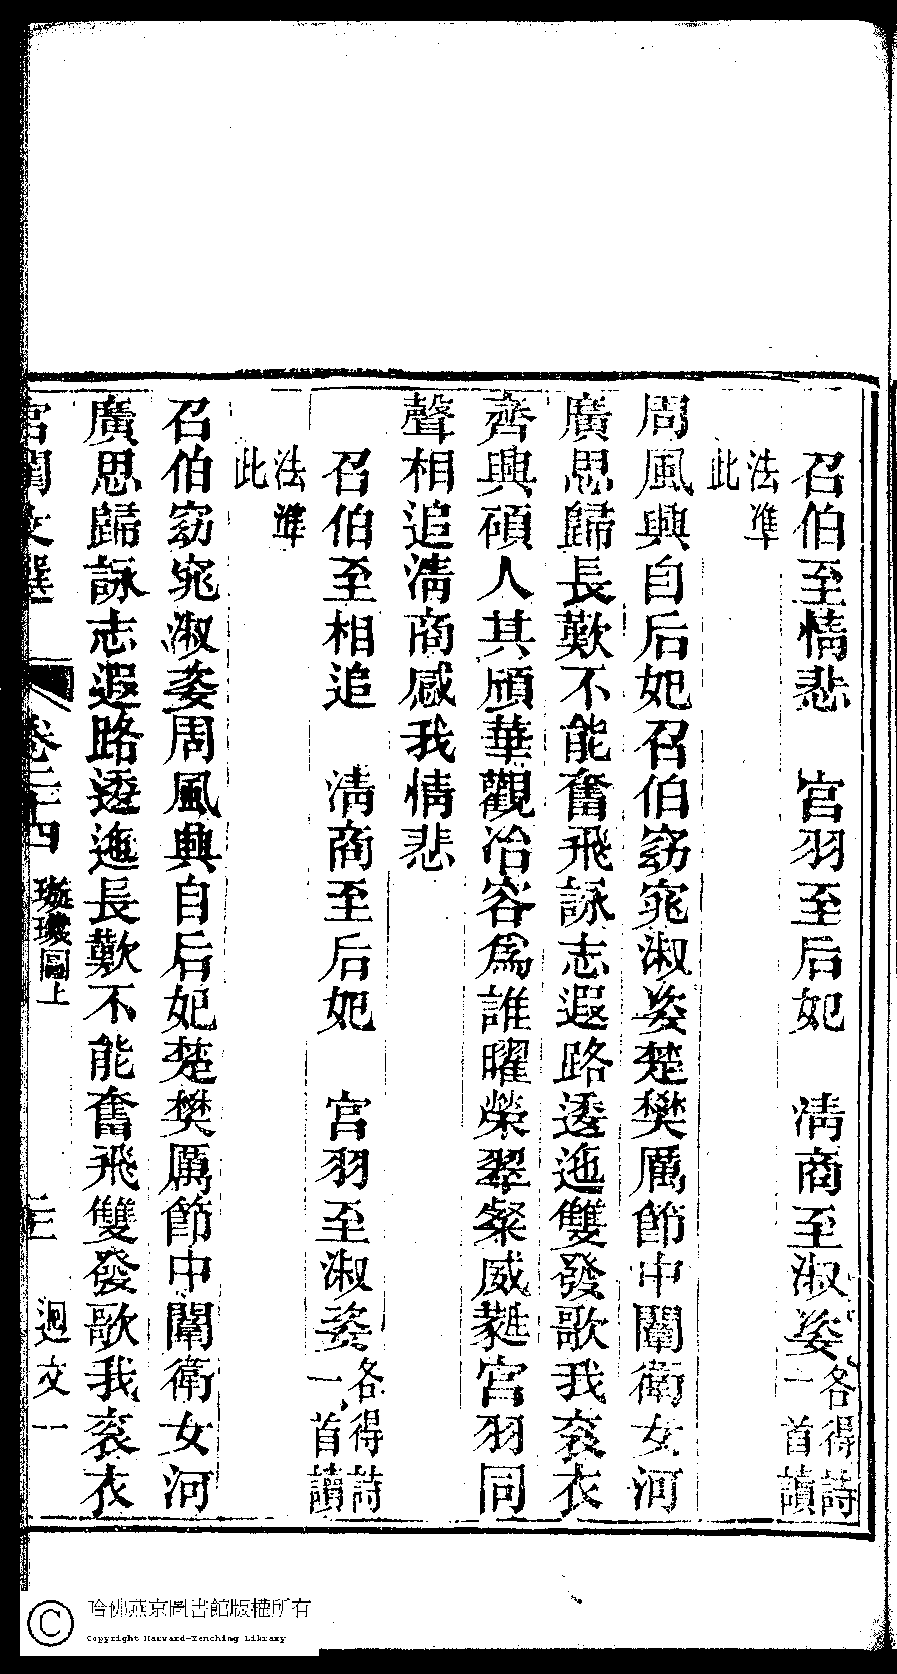 召伯至情悲　宮羽至后妃　淸商至淑姿各得詩一首讀
法準此
周風興自后妃召伯窈窕淑姿楚樊厲節中闈衛女河
廣思歸長歎不能奮飛詠志遐路逶迤雙發歌我衮衣
齊興碩人其頎華觀冶容爲誰曜榮翠粲威蕤宮羽同
聲相追淸商感我情悲
召伯至相追　淸商至后妃　宮羽至淑姿各得詩一首讀
法準此
召伯窈窕淑姿周風興自后妃楚樊厲節中闈衛女河
廣思歸詠志遐路逶迤長歎不能奮飛雙發歌我衮衣
宮閨文選　卷二十四　璇璣圖上　三　迴文一
哈佛燕京圖書館版權所有
Copyright Harvard-Yenching Library